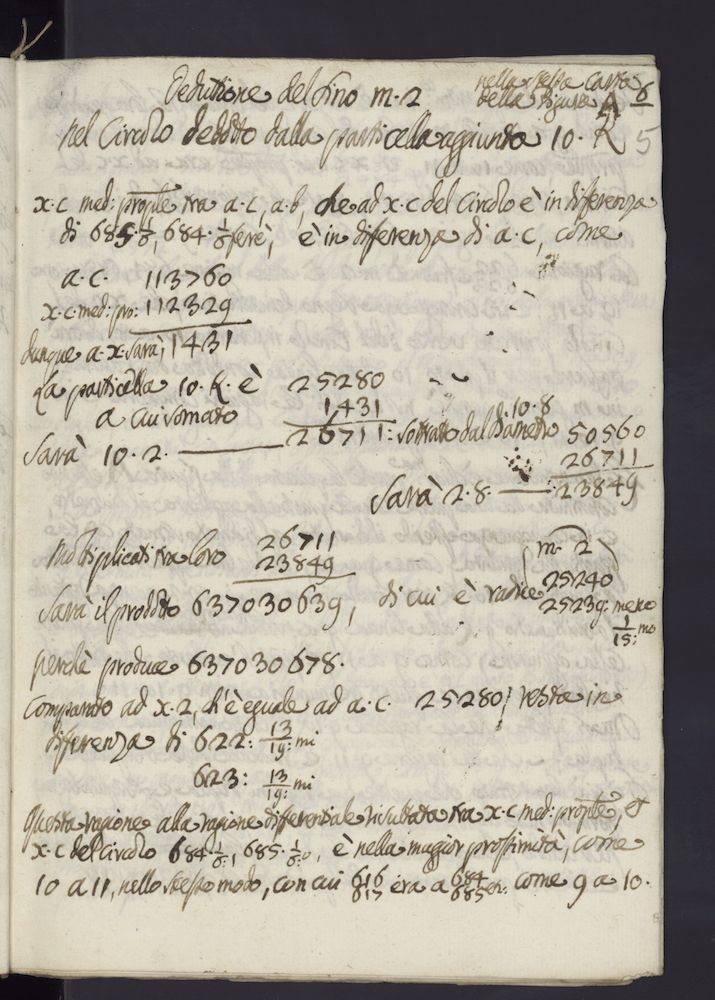 Dedutione del sino m. 2
nella stessa carta
della figura A
6
nel Circolo dedotto dalla particella aggiunta 10. K
5
x. c med: proptle tra a. c, a. b, che ad x. c del Circolo è in differenza
di 685. 1/8, 684. 1/8 ferè, è in differenza di a. c, come
a. c. 113760
x. c. med: pro: 112329
dunque a. x. sarà, 1431
La particella 10. K. è 25280
a cui somato 1431
sarà 10. 2. 26711: sottrato dal Diametro 10. 8 50560
26711
sarà 2. 8. 23849
Moltiplicati tra loro 26711
23849
m. 2
25240
sarà il prodotto 637030639, di cui è radice 25239: meno
1/15: mo
perchè produce 637030678.
Comparato ad x. 2, ch'è eguale ad a. c. 25280, resta in
differenza di 622: 13/19: mi
623: 13/19: mi
Questa ragione alla ragione differentiale risultata tra x. c med: proptle, et
x. c del Circolo 684. 1/8:, 685. 1/8:, è nella maggior prossimità, come
10 a 11, nello stesso modo, con cui 616 617 era a 684 685 come 9 a 10.